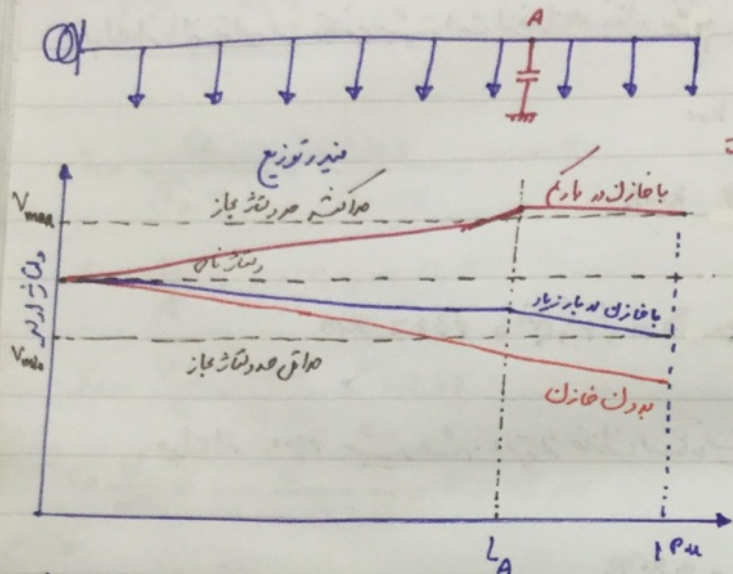 A
فیدر توزیع
Vmax
حداکثر حد ولتاژ مجاز
با خازن در بار کم
ولتاژ نامی
با خازن در بار زیاد
Vmin
حداقل حد ولتاژ مجاز
بدون خازن
LA
1 P.u